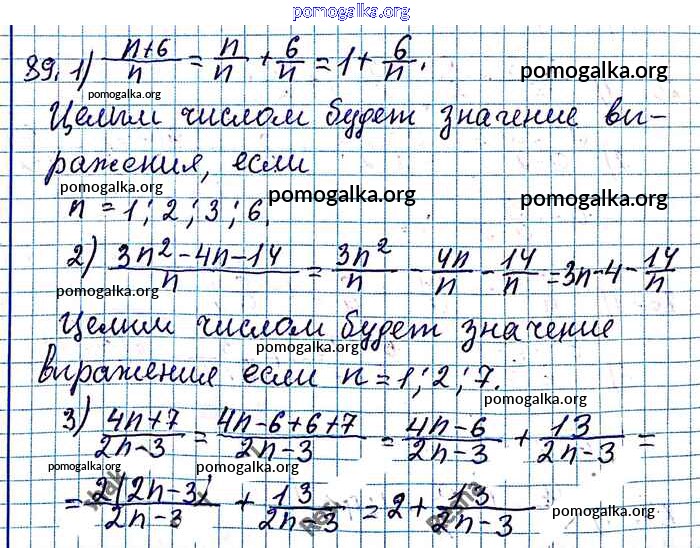 pomogalka.org
89. 1) (n+6)/n = n/n + 6/n = 1 + 6/n.
pomogalka.org
pomogalka.org
Целым числом будет значение вы-
ражения, если
pomogalka.org
pomogalka.org
pomogalka.org
n = 1; 2; 3; 6.
2) (3n²-4n-14)/n = 3n²/n - 4n/n - 14/n = 3n-4-14/n
pomogalka.org
pomogalka.org
Целым числом будет значение
pomogalka.org
выражения если n=1; 2; 7.
pomogalka.org
3) (4n+7)/(2n-3) = (4n-6+6+7)/(2n-3) = (4n-6)/(2n-3) + 13/(2n-3) =
pomogalka.org
pomogalka.org
= 2(2n-3)/(2n-3) + 13/(2n-3) = 2 + 13/(2n-3)
pomogalka.org